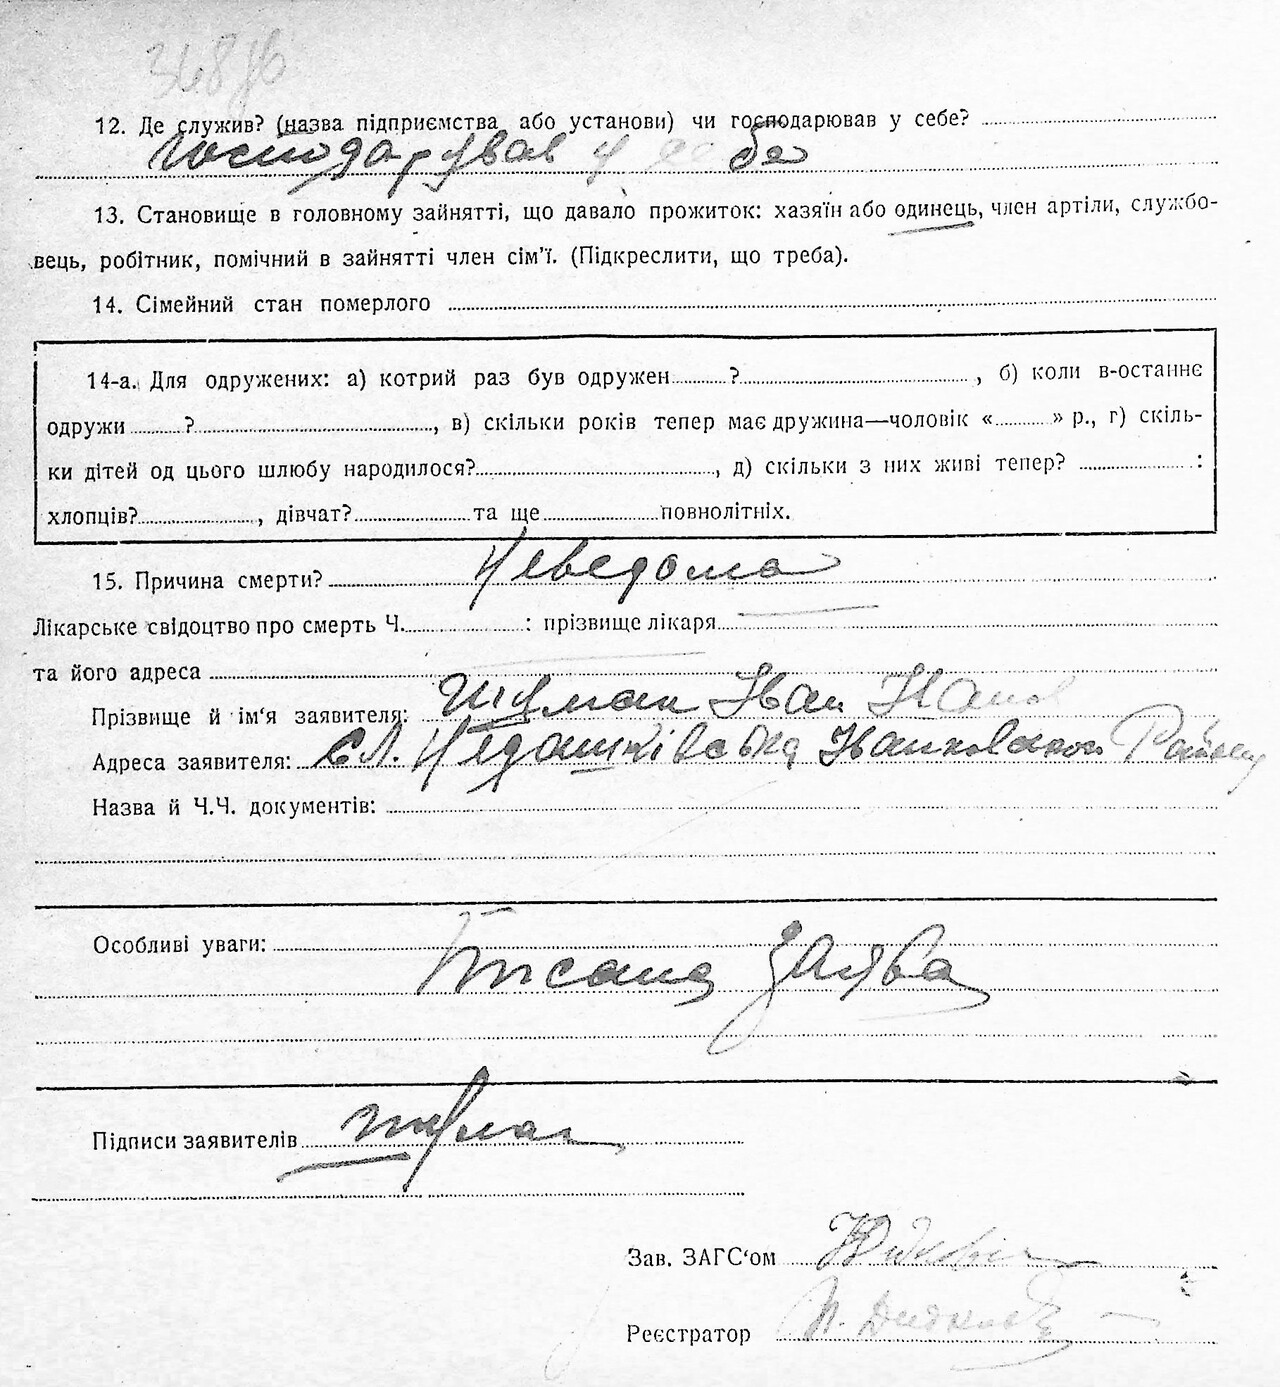 12. Де служив? (назва підприємства або установи) чи господарював у себе?
Господарував у себе
13. Становище в головному зайнятті, що давало прожиток: хазяїн або одинець, член артіли, службо-
вець, робітник, помічний в зайнятті член сім'ї. (Підкреслити, що треба).
14. Сімейний стан померлого
14-а. Для одружених: а) котрий раз був одружен ? , б) коли в-останнє
одружи ? , в) скільки років тепер має дружина—чоловік « » р., г) скіль-
ки дітей од цього шлюбу народилося? , д) скільки з них живі тепер? :
хлопців? , дівчат? та ще повнолітніх.
15. Причина смерти? Неведома
Лікарське свідоцтво про смерть Ч. : прізвище лікаря
та його адреса
Прізвище й ім'я заявителя: Шумак Іван Іванов
Адреса заявителя: сл. Недашківська Іванковської Району
Назва й Ч.Ч. документів:
Особливі уваги:
Писана заява
Підписи заявителів Шумак
Зав. ЗАГС'ом
Реєстратор